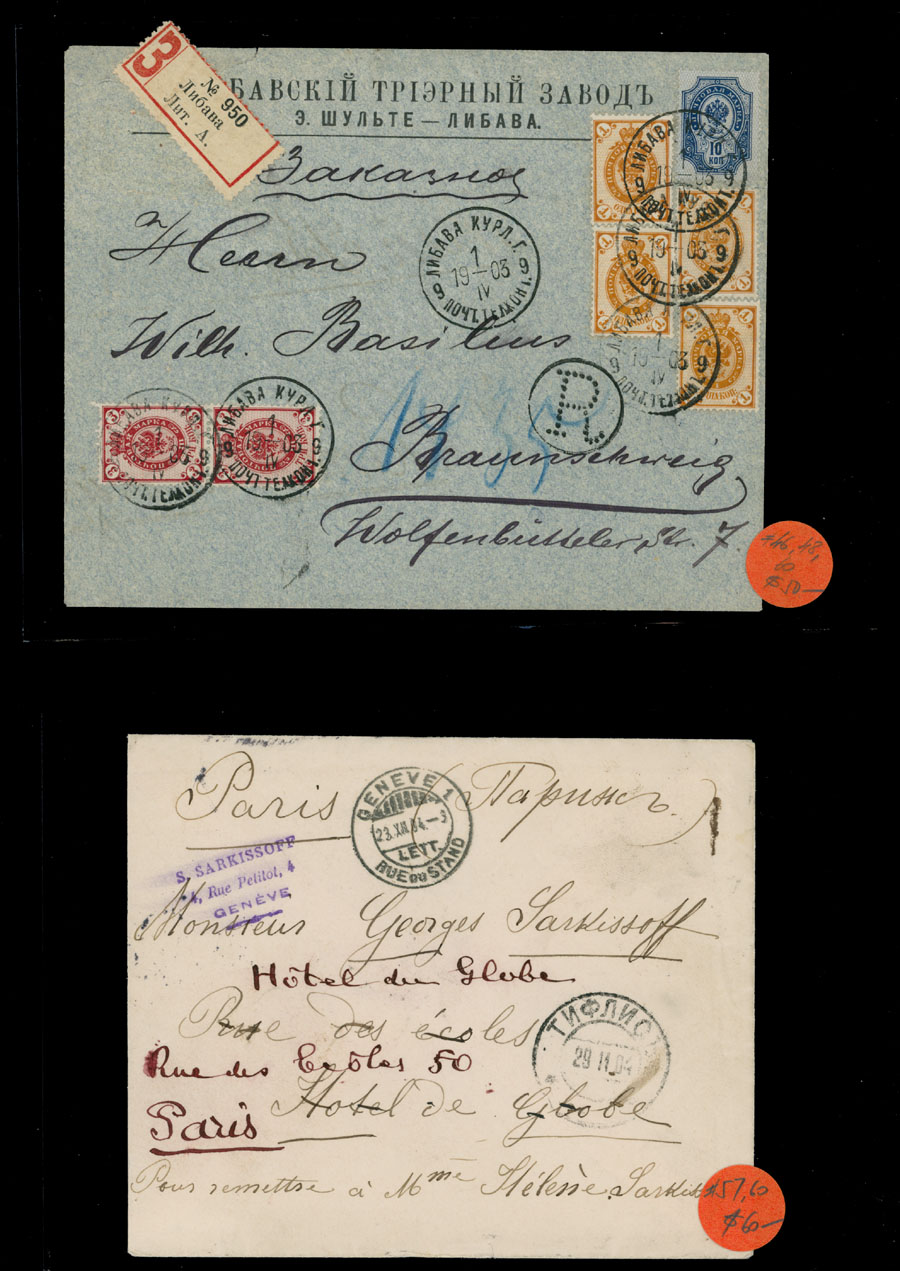 З
№ 950
Либава
Лит. А.
БАВСКІЙ ТРІЭРНЫЙ ЗАВОДЪ
Э. ШУЛЬТЕ — ЛИБАВА.
10
КОП
Заказное
Herrn
Wilh. Basilius
Braunschweig
Wolfenbütteler Str. 7.
ЛИБАВА КУРЛ. Г.
1
19—03
IV
9 ПОЧТ. ТЕЛ. КОН. 9
ЛИБАВА КУРЛ. Г.
1
19—03
IV
R
#46, 48,
60
$50—
Paris (Парижъ.)
GENEVE 1
23.XII.04.—3
LETT.
RUE DU STAND
S. SARKISSOFF
4, Rue Petitot, 4
GENÈVE
Monsieur Georges Sarkissoff
Hôtel du Globe
Rue des écoles
ТИФЛИС
29 11 04
Rue des Ecôles 50
Hotel de Globe
Paris
Pour remettre à Mme Hélène Sarkis
#57,60
$60—